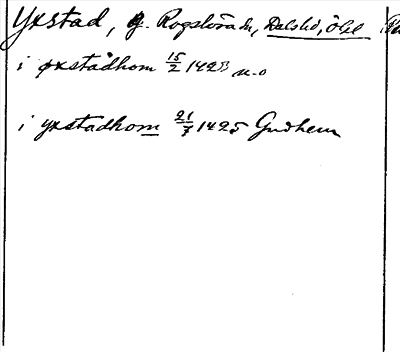 Yxstad, g. Rogslösa sn, Dalshd, Ögl
i yxstadhom 15/2 1423 n.o
i yxstadhom 21/7 1425 Gudhem